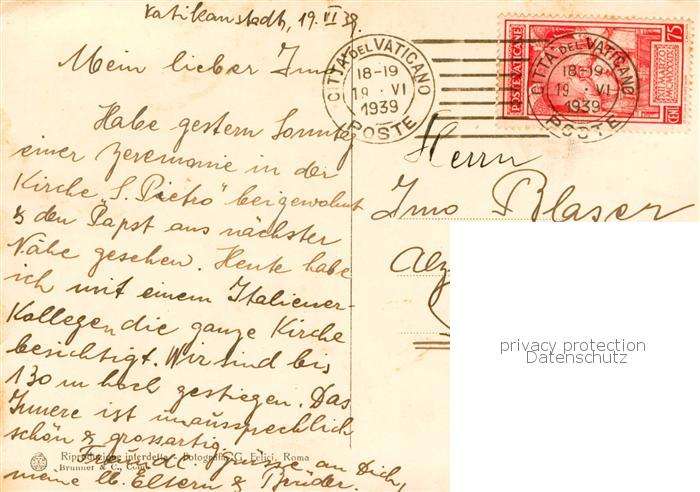 Vatikanstadt, 19. VI 39.
Mein lieber Imo
Habe gestern Sonntag
einer Zeremonie in der
Kirche „S. Pietro" beigewohnt
& den Papst aus nächster
Nähe gesehen. Heute habe
ich mit einem Italiener-
Kollegen die ganze Kirche
besichtigt. Wir sind bis
130 m hoch gestiegen. Das
Innere ist unaussprechlich
schön & grossartig.
Freundl. Grüsse an Dich,
meine lb. Eltern & Brüder.
Riproduzione interdetta - Fotografia G. Felici, Roma
Brunner & C., Como
CITTA' DEL VATICANO
18-19
19 · VI
1939
POSTE
CITTA' DEL VATICANO
18-19
19 · VI
1939
POSTE
POSTE VATICANE
75
Herrn
Imo Blaser
privacy protection
Datenschutz